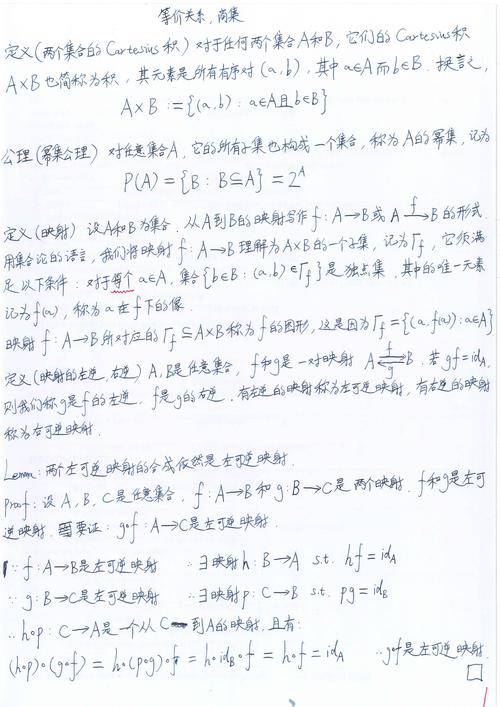 等价关系,商集
定义(两个集合的Cartesius积) 对于任何两个集合A和B,它们的Cartesius积
A×B也简称为积,其元素是所有有序对(a,b),其中a∈A而b∈B.换言之,
A×B := {(a,b) : a∈A且b∈B}
公理(幂集公理) 对任意集合A,它的所有子集也构成一个集合,称为A的幂集,记为
P(A) = {B : B⊆A} = 2^A
定义(映射) 设A和B为集合.从A到B的映射写作f : A→B或A –f→ B的形式.
用集合论的语言,我们将映射f : A→B理解为A×B的一个子集,记为Γf,它须满
足以下条件:对于每个a∈A,集合{b∈B : (a,b)∈Γf}是独点集.其中的唯一元素
记为f(a),称为a在f下的像.
映射f : A→B所对应的Γf⊆A×B称为f的图形,这是因为Γf = {(a,f(a)) : a∈A}
定义(映射的左逆,右逆) A,B是任意集合,f和g是一对映射 A ⇄ B (f, g).若gf=idA,
则我们称g是f的左逆,f是g的右逆.有左逆的映射称为左可逆映射,有右逆的映射
称为右可逆映射.
Lemma:两个左可逆映射的合成依然是左可逆映射.
Proof:设A,B,C是任意集合,f : A→B和g : B→C是两个映射.f和g是左可
逆映射.需要证:g∘f : A→C是左可逆映射.
∵ f : A→B是左可逆映射 ∴∃映射h : B→A s.t. hf=idA
∵ g : B→C是左可逆映射 ∴∃映射p : C→B s.t. pg=idB
∴ h∘p : C→A是一个从C到A的映射,且有:
(h∘p)∘(g∘f) = h∘(p∘g)∘f = h∘idB∘f = h∘f = idA ∴g∘f是左可逆映射.
□
1